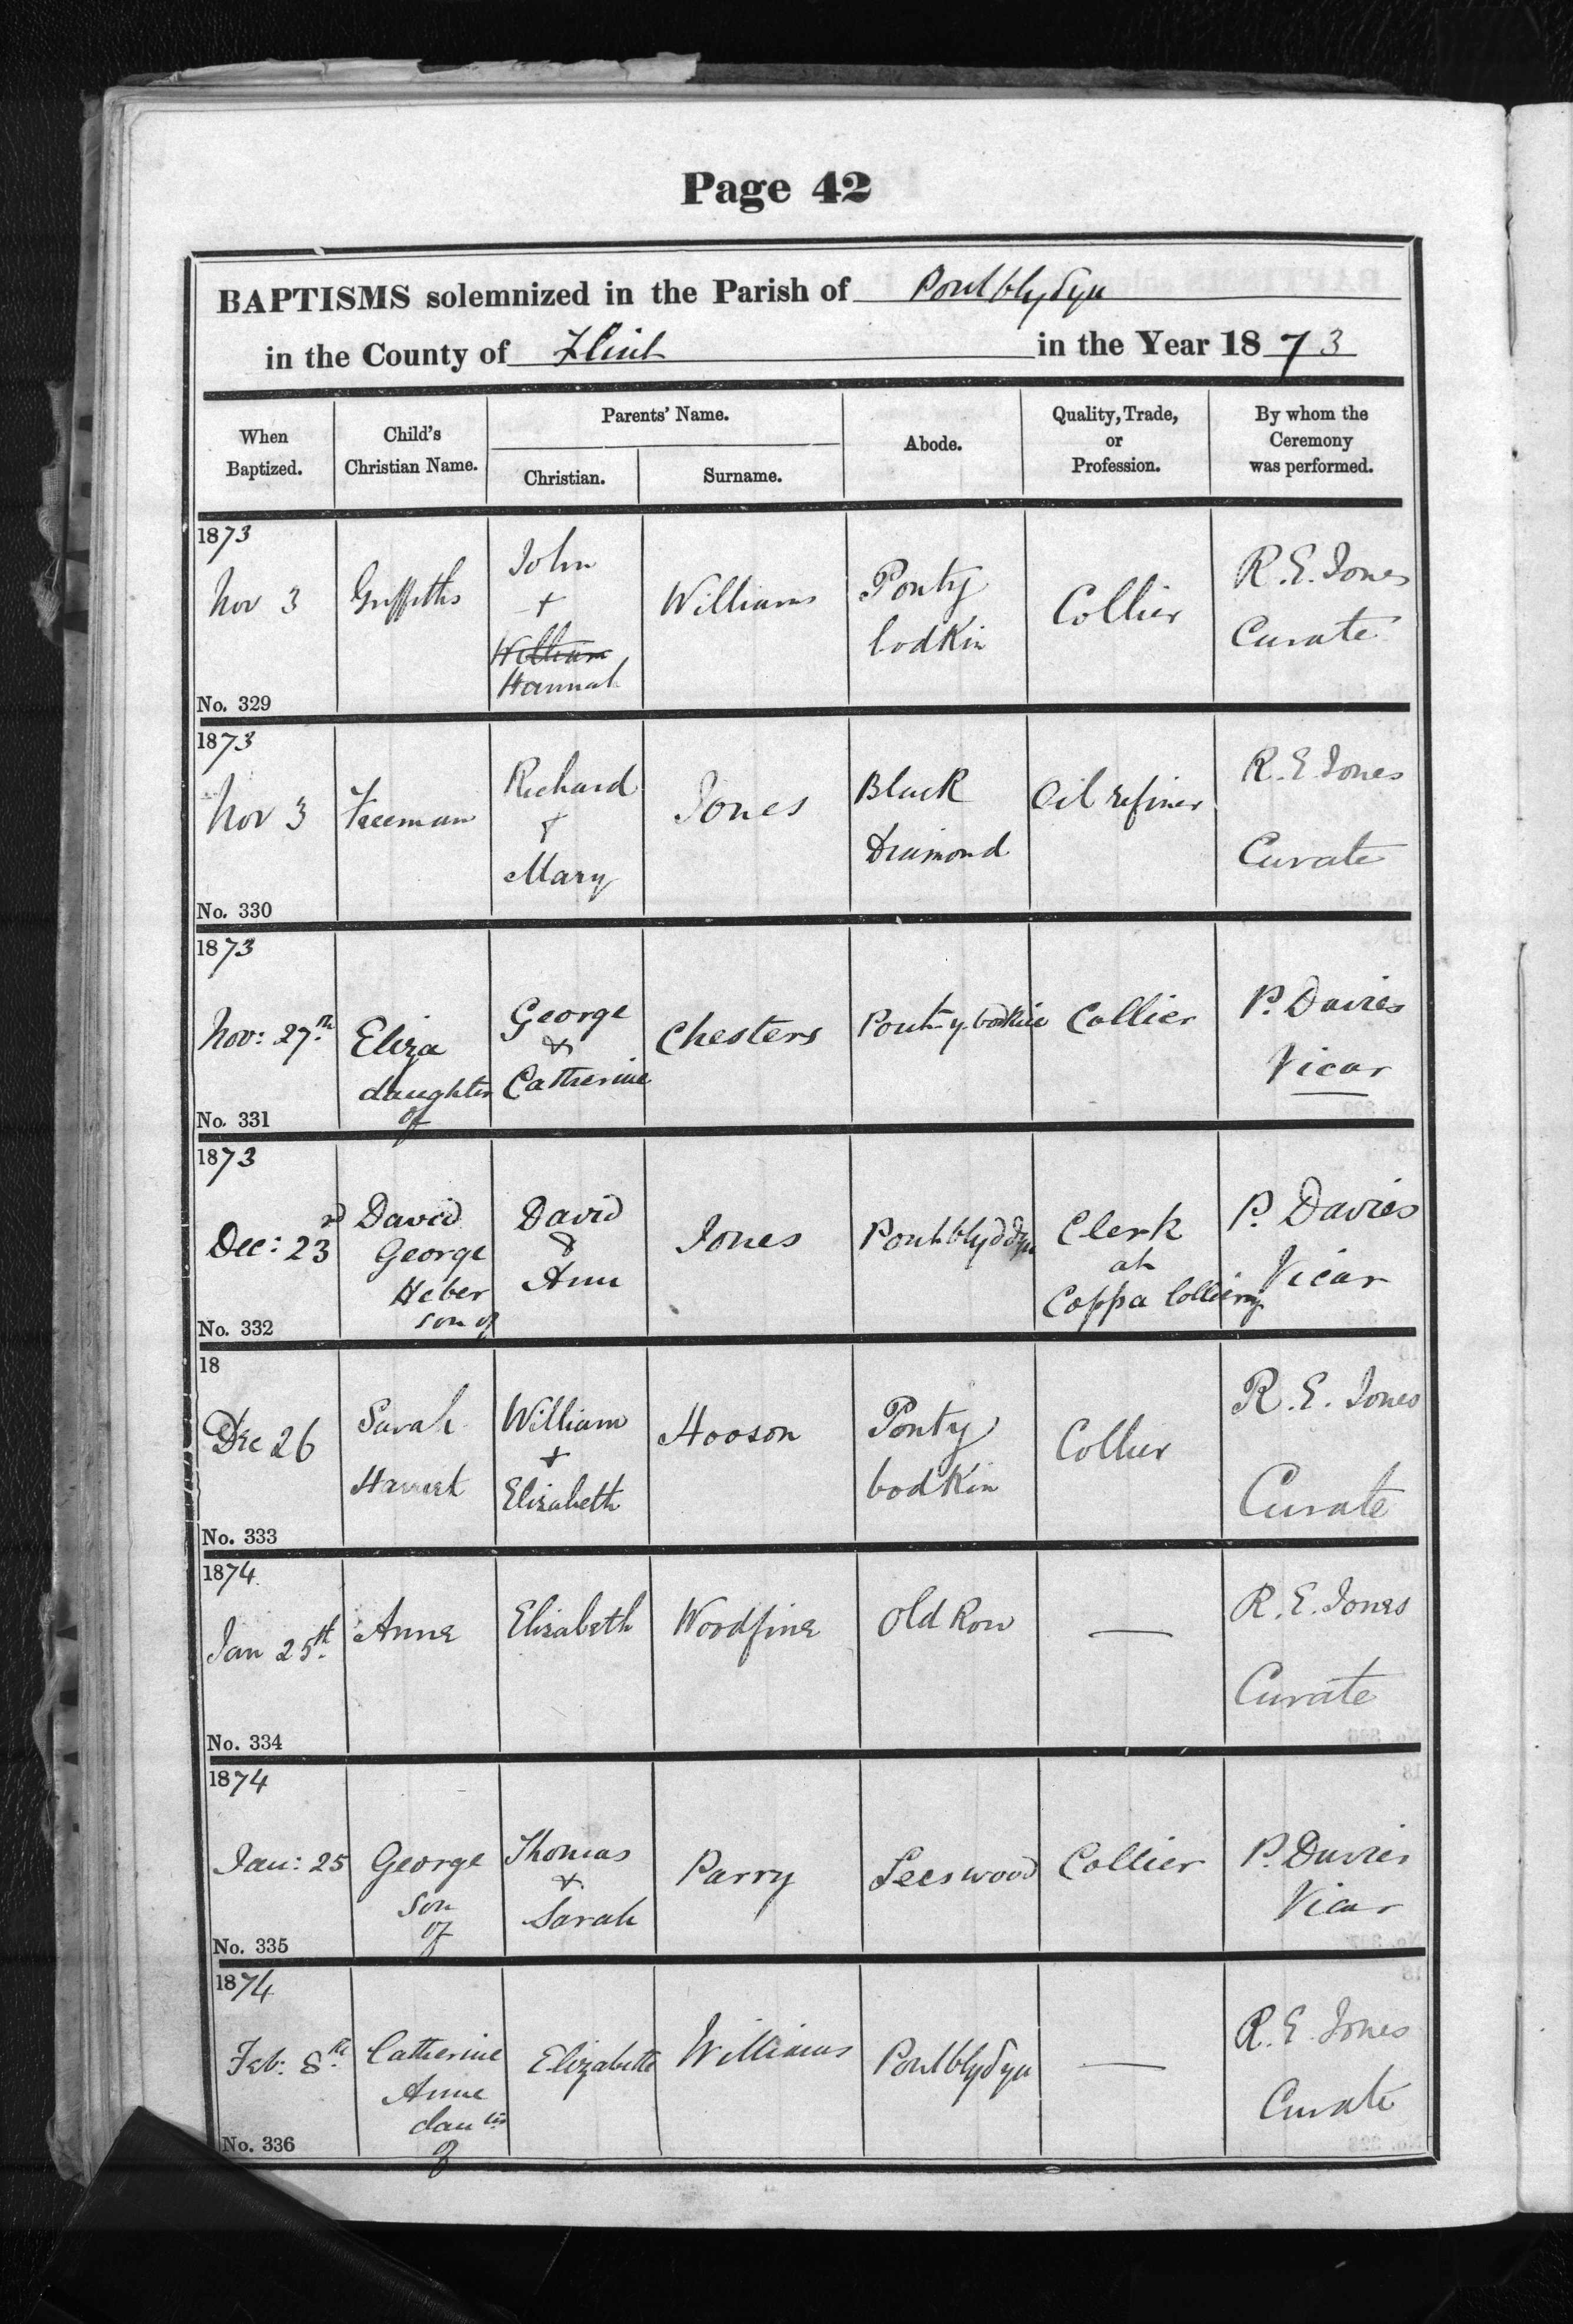 Page 42
BAPTISMS solemnized in the Parish of Pontblyddyn
in the County of Flint in the Year 1873
When Baptized.
Child's Christian Name.
Parents' Name.
Christian.
Surname.
Abode.
Quality, Trade, or Profession.
By whom the Ceremony was performed.
1873
Nov 3
No. 329
Griffiths
John
+
William
Hannah
Williams
Ponty
bodkin
Collier
R. E. Jones
Curate
1873
Nov 3
No. 330
Freeman
Richard
+
Mary
Jones
Black
Diamond
Oil refiner
R. E. Jones
Curate
1873
Nov: 27th
No. 331
Eliza
daughter
of
George
&
Catherine
Chesters
Pontybodkin
Collier
P. Davies
Vicar
1873
Dec: 23rd
No. 332
David
George
Heber
son of
David
&
Ann
Jones
Pontblyddyn
Clerk
at
Coppa Colliery
P. Davies
Vicar
18
Dec 26
No. 333
Sarah
Harriet
William
+
Elizabeth
Hooson
Ponty
bodkin
Collier
R. E. Jones
Curate
1874
Jan 25th
No. 334
Anne
Elizabeth
Woodfine
Old Row
—
R. E. Jones
Curate
1874
Jan: 25
No. 335
George
son
of
Thomas
&
Sarah
Parry
Leeswood
Collier
P. Davies
Vicar
1874
Feb: 8th
No. 336
Catherine
Anne
dauter
of
Elizabeth
Williams
Pontblyddyn
—
R. E. Jones
Curate